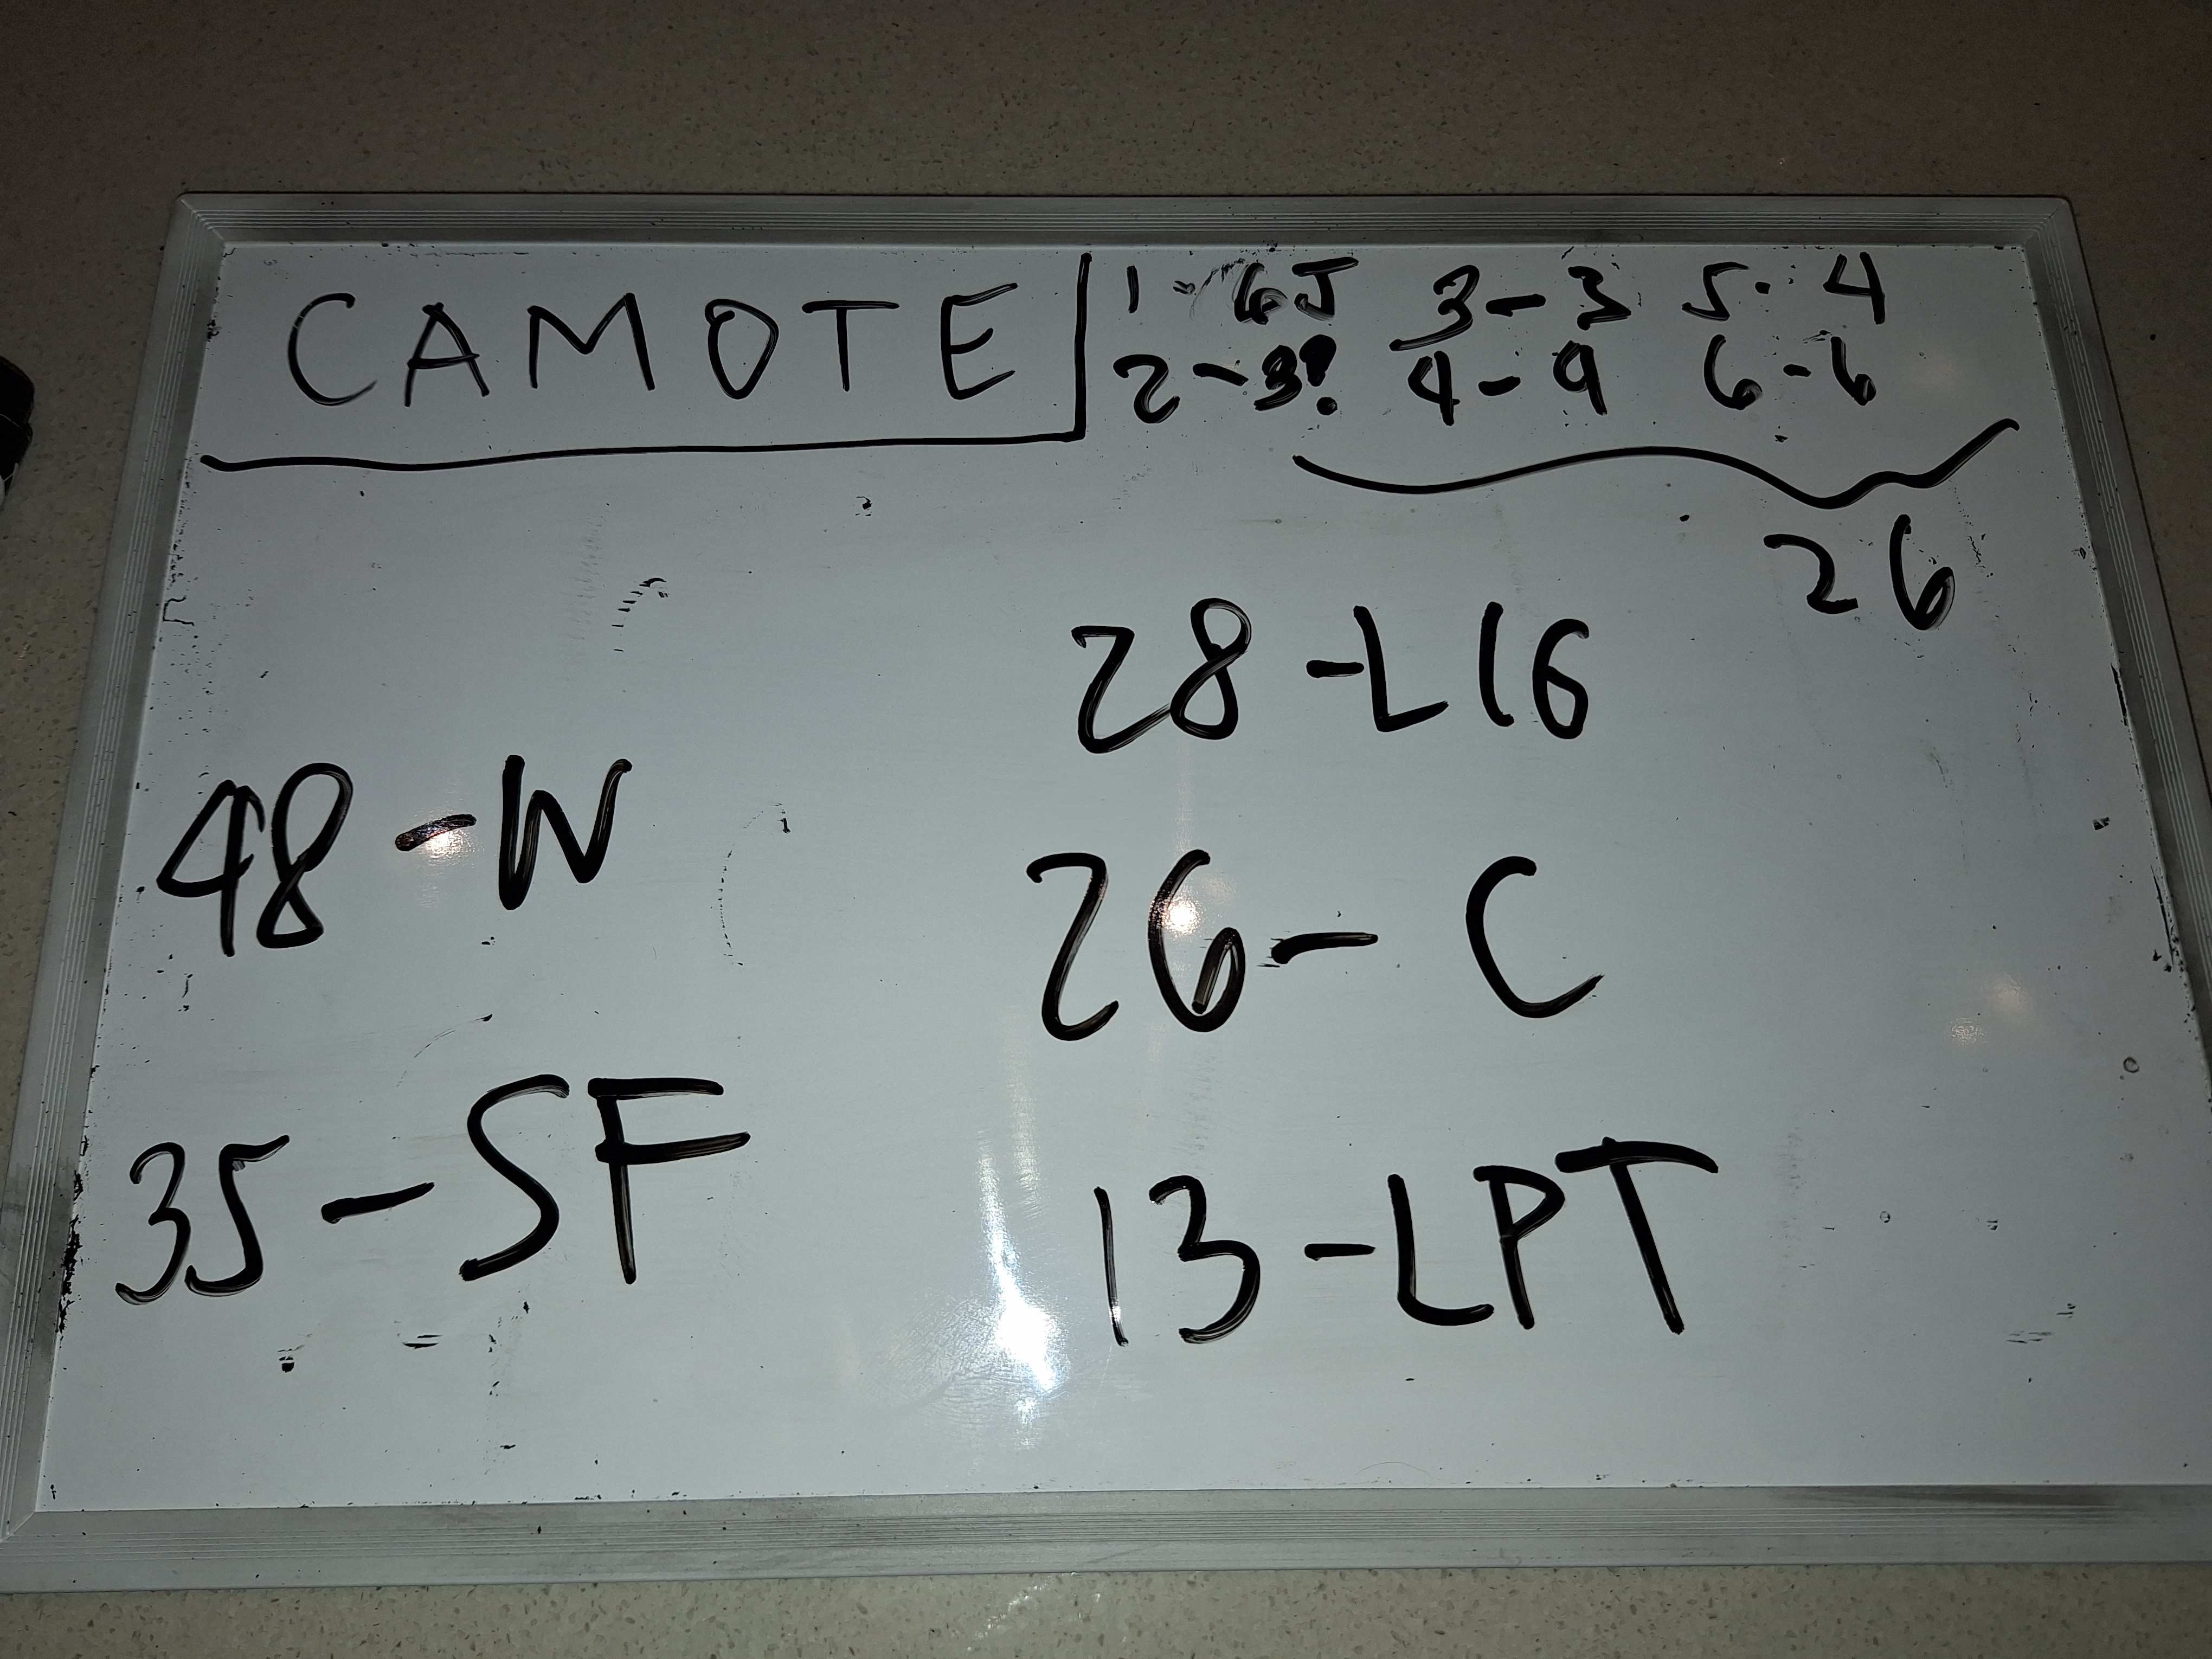 CAMOTE
1 - 5 3 - 3 5 - 4
2 - 3? 4 - 9 6 - 6
26
28 - L16
48 - W
26 - C
35 - SF
13 - LPT